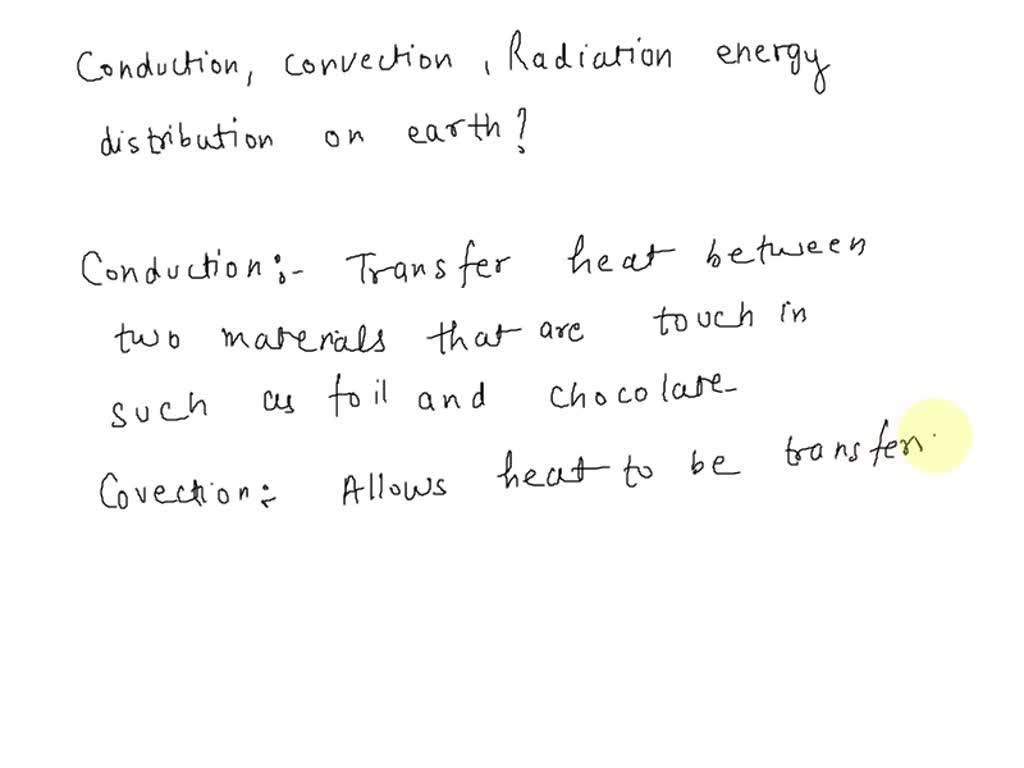 Conduction, convection, Radiation energy
distribution on earth?
Conduction:- Transfer heat between
two materials that are touch in
such as foil and chocolate
Covection:- Allows heat to be transfer